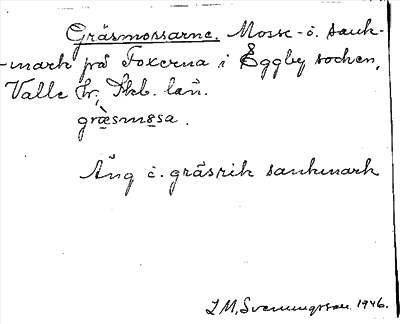 Gräsmossarne. Mosse- o. sank-
-mark på Foxerna i Eggby socken,
Valle hr; Skb. län.
græ̀smɷsa.
Äng o. gräsrik sankmark
L M, Svenungsson 1946.